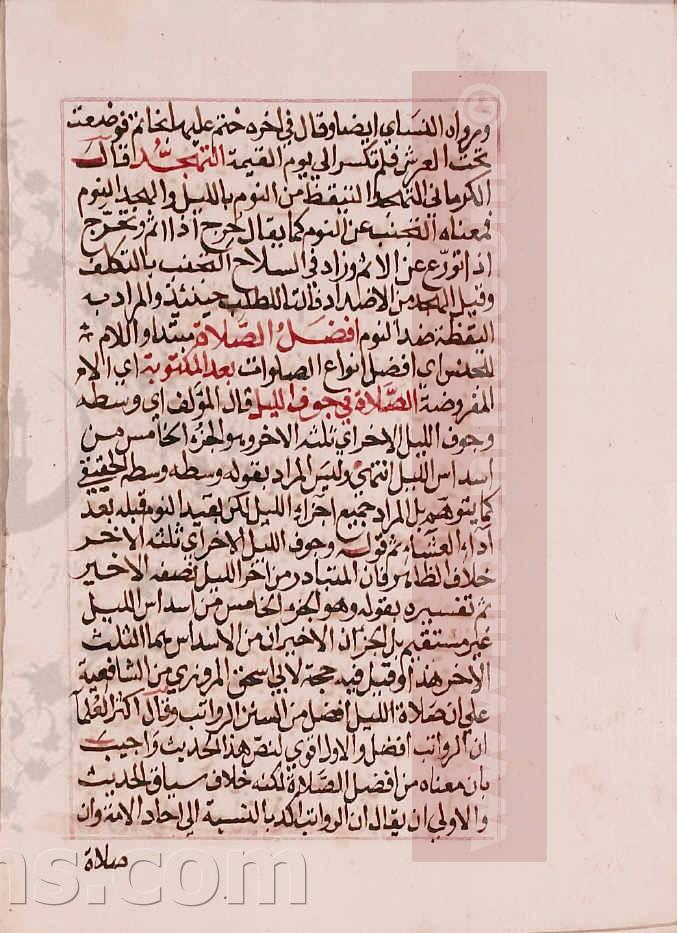 ورواه النساي ايضا وقال في اخره ختم عليها بخاتم فوضعت
تحت العرش فلم تكسر الي يوم القيمة التهجُّد قال
الكرماني التهجد التيقظ من النوم بالليل والهجد النوم
فمعناه التجنب عن النوم كما يقال حرج اذا اثم وتحرّج
اذا تورّع عن الاثم وزاد في السلاح التجنب بالتكلف
وقيل الهجد من الاضداد قالت للطلب حينئذ والمراد به
اليقظة ضد النوم افضل الصلاة مبتدا واللام
للجنس اي افضل انواع الصلوات بعد المكتوبة اي الام
المفروضة الصلاة في جوف الليل قال المؤلف اي وسطه
وجوف الليل الاخر اي ثلثه الاخر وهو الجزء الخامس من
اسداس الليل انتهي وليس المراد بقوله وسطه وسطه الحقيقي
كما يتوهم بل المراد جميع اجزاء الليل لكن بقيد النوم قبله بعد
آداء العشاء ثم قوله وجوف الليل الاخر اي ثلثه الاخر
خلاف الظاهر فان المتبادر من اخر الليل نصفه الاخير
ثم تفسيره بقوله وهو الجزء الخامس من اسداس الليل
غير مستقيم بل الجزان الاخيران من الاسداس هما الثلث
الاخر هذا وقيل فيه حجة لابي اسحق المروزي من الشافعية
علي ان صلاة الليل افضل من السنن الرواتب وقال اكثر العلمآ
ان الرواتب افضل والاول اقوي لنص هذا الحديث واجيب
بان معناه من افضل الصلاة لكنه خلاف سياق الحديث
والاولي ان يقال ان الرواتب اكد بالنسبة الي احاد الامة وان
صلاة
ns.com